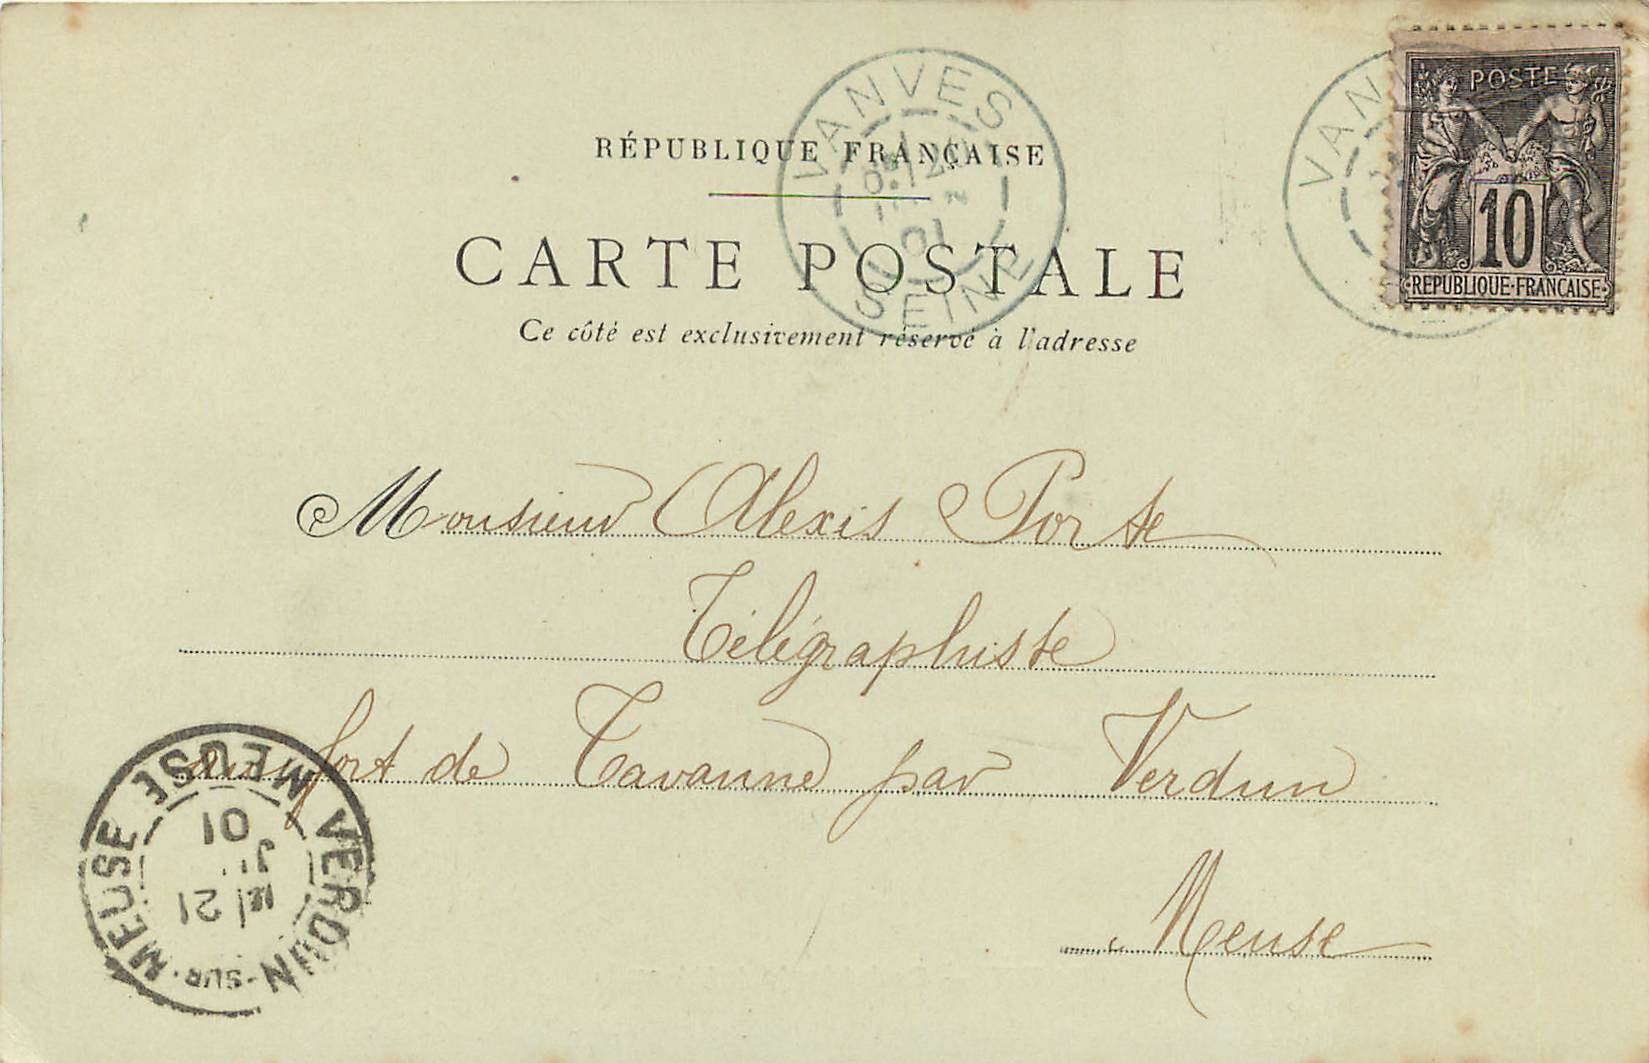 VANVES
SEINE
01
VAN
POSTE
10
REPUBLIQUE·FRANCAISE
RÉPUBLIQUE FRANÇAISE
CARTE POSTALE
Ce côté est exclusivement réservé à l'adresse
Monsieur Alexis Porte
Télégraphiste
au fort de Tavanne par Verdun
Meuse
VERDUN-SUR-MEUSE
MEUSE
21
01